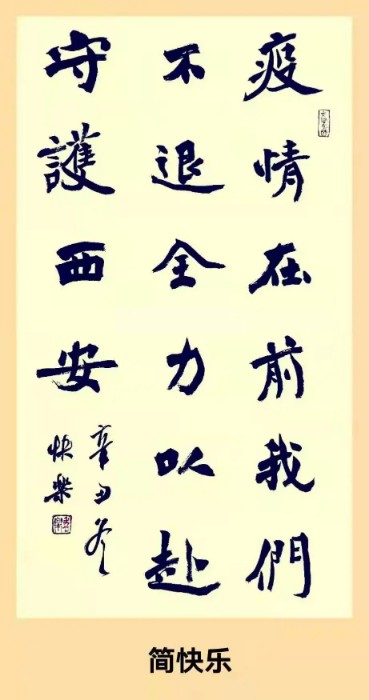 疫情在前我們
不退全力以赴
守護西安
辛丑冬
快樂
简快乐